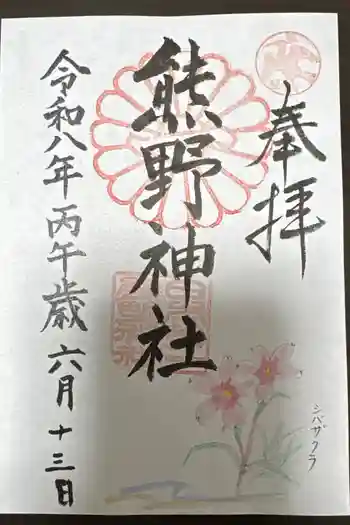 奉拝
熊野神社
令和八年丙午歳六月十三日
シバザクラ